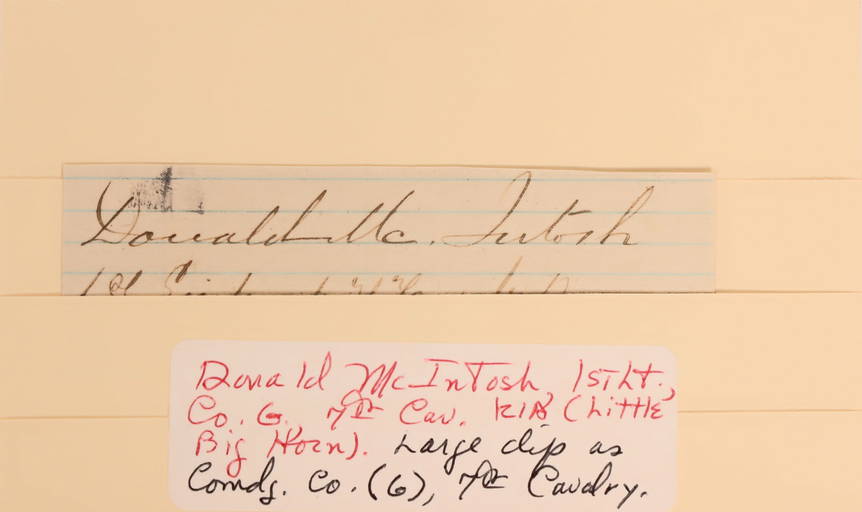 Donald Mc. Intosh
1st
Donald McIntosh, 1st Lt.,
Co. G, 7th Cav. KIA (Little
Big Horn). Large clip as
Comdg. Co. (G), 7th Cavalry.